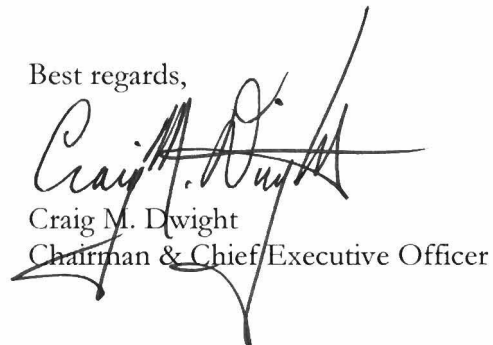 Best regards,
Craig M. Dwight
Craig M. Dwight
Chairman & Chief Executive Officer